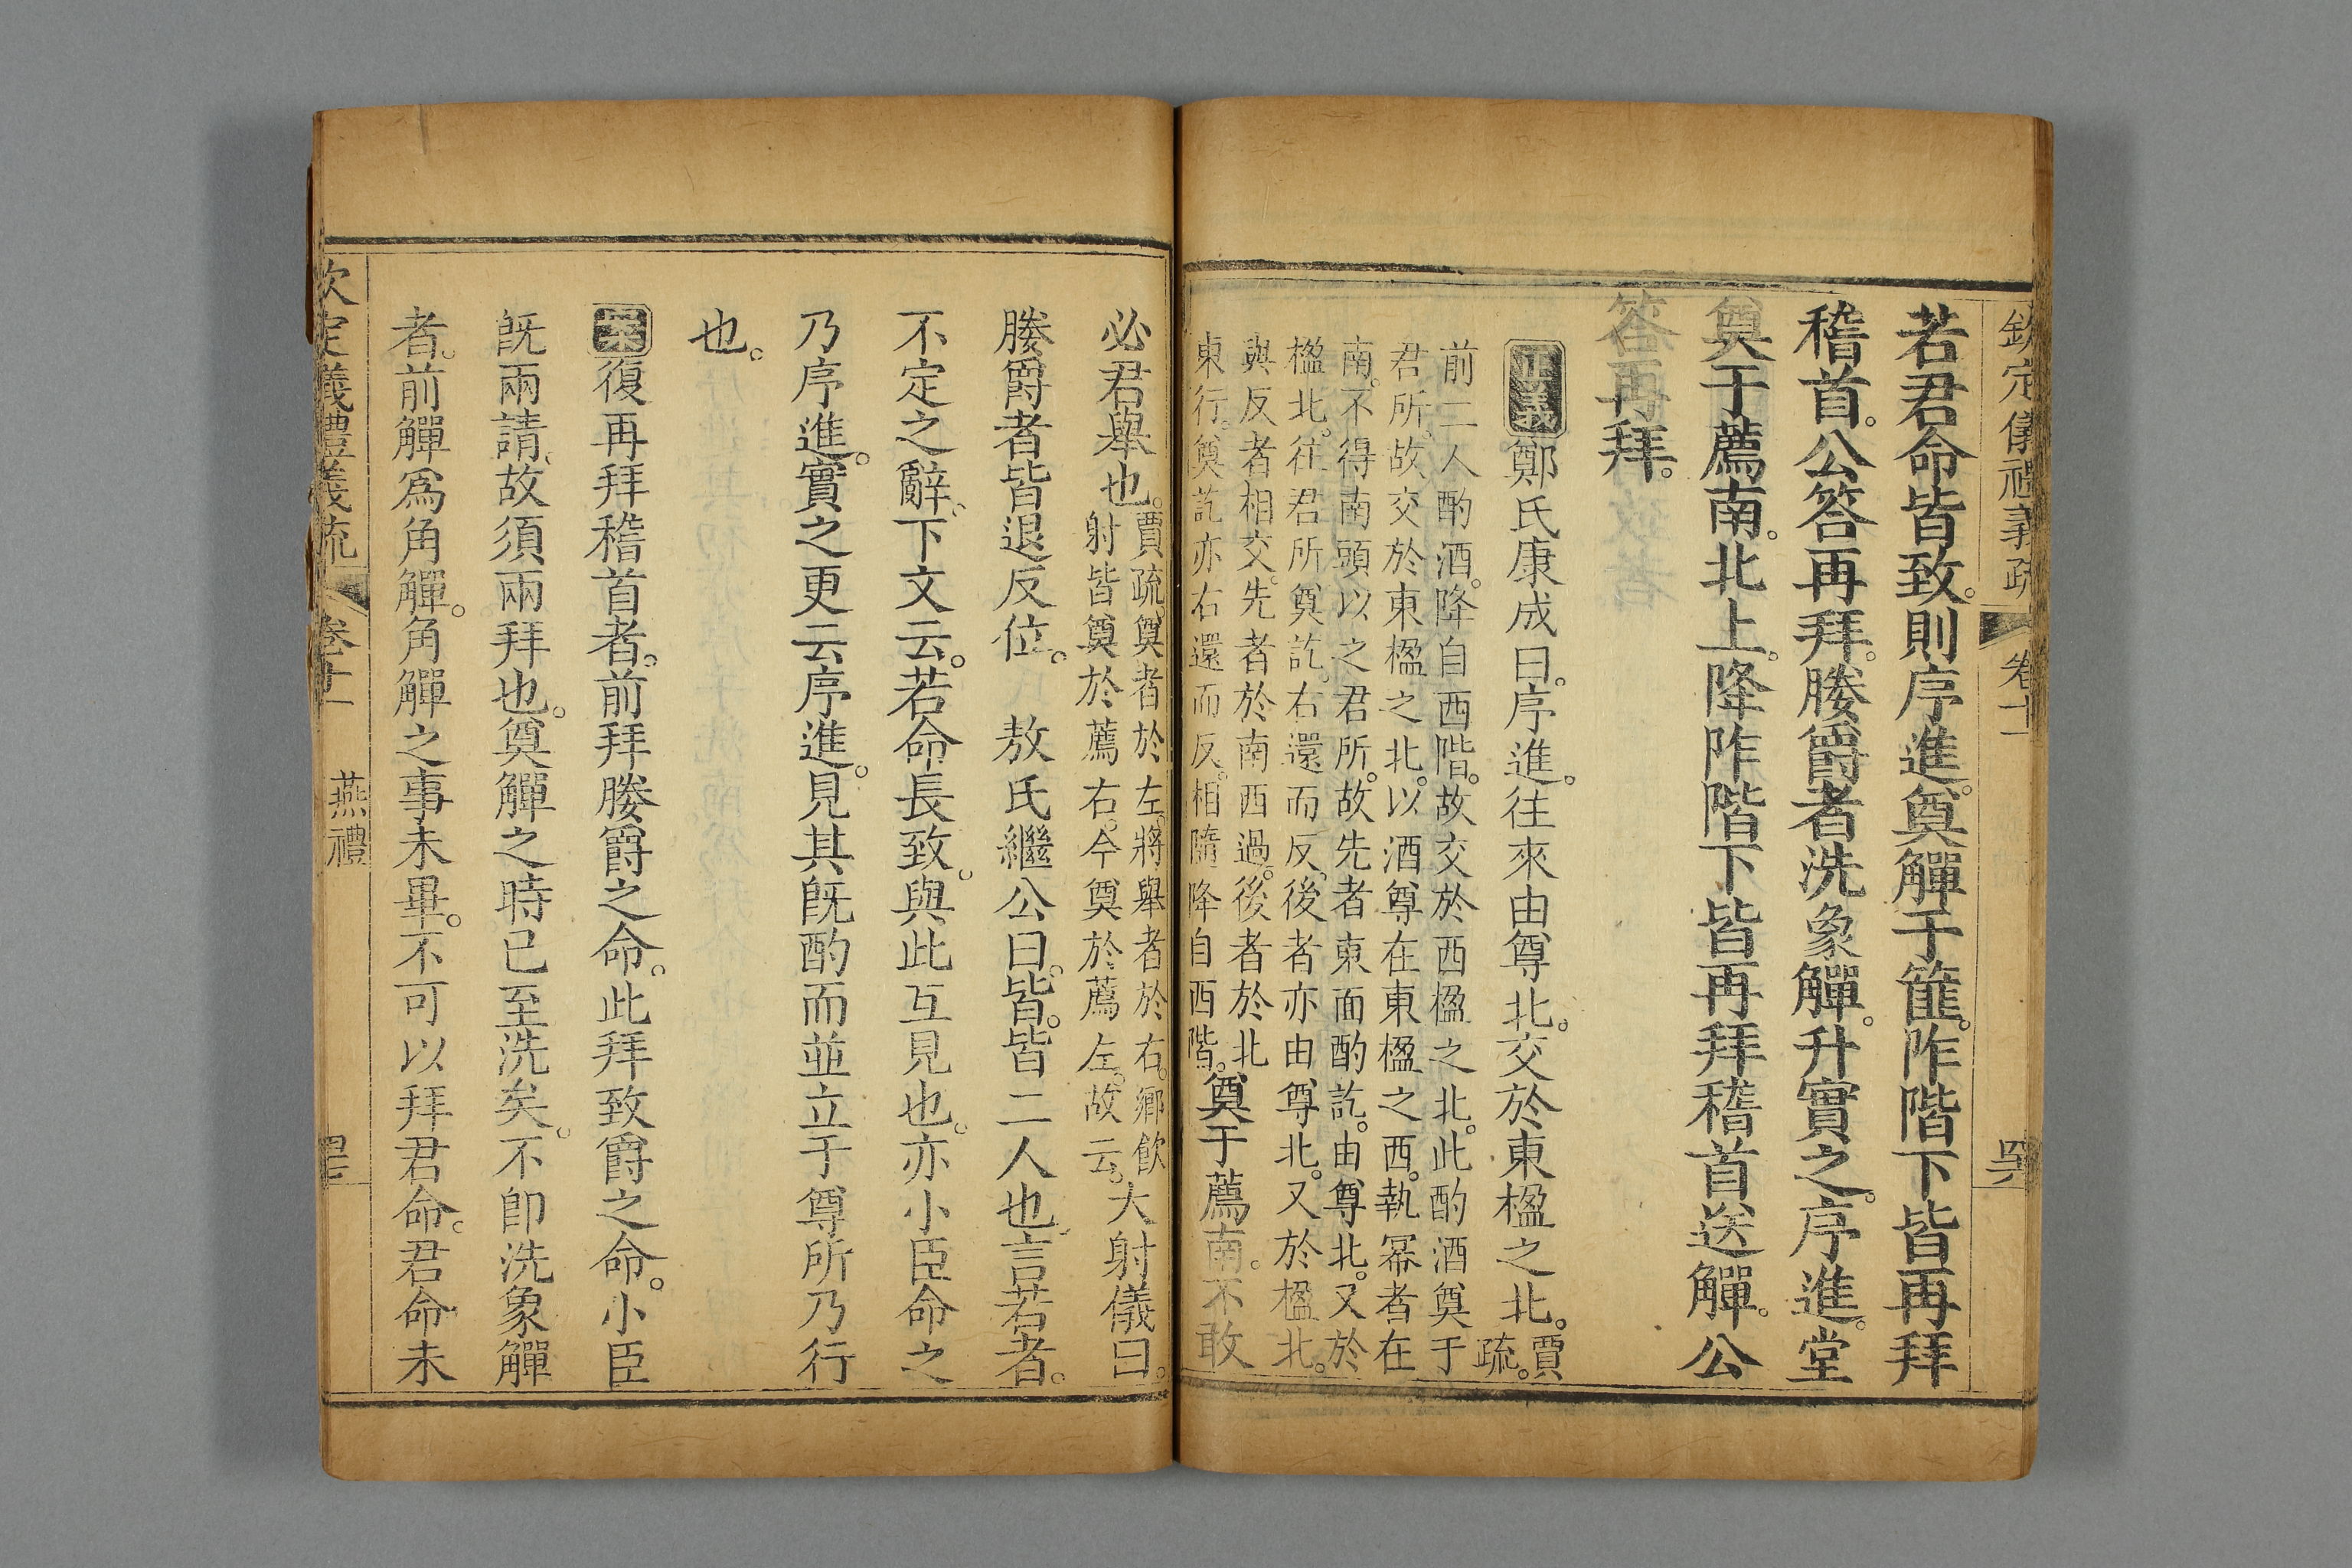 欽定儀禮義疏 卷十一
若君命皆致。則序進。奠觶于篚。阼階下皆再拜
稽首。公答再拜。媵爵者洗象觶。升實之。序進。堂
奠于薦南。北上。降阼階下皆再拜稽首送觶。公
答再拜。
正義鄭氏康成曰。序進。往來由尊北。交於東楹之北。賈
疏。
前二人酌酒。降自西階。故交於西楹之北。此酌酒奠于
君所。故交於東楹之北。以酒尊在東楹之西。執冪者在
南。不得南頭以之君所。故先者東面酌訖。由尊北。又於
楹北。往君所奠訖。右還而反、後者亦由尊北。又於楹北。
與反者相交。先者於南西過。後者於北
東行。奠訖亦右還而反。相隨降自西階。奠于薦南。不敢
必君舉也。賈疏。奠者於左。將舉者於右。鄉飲
射皆奠於薦右。今奠於薦左。故云。大射儀曰。
媵爵者皆退反位。 敖氏繼公曰。皆。皆二人也、言若者。
不定之辭、下文云。若命長致。與此互見也。亦小臣命之
乃序進。實之更云序進。見其旣酌而並立于尊所乃行
也。
案復再拜稽首者。前拜媵爵之命。此拜致爵之命。小臣
旣兩請。故須兩拜也。奠觶之時已至洗矣。不卽洗象觶
者。前觶爲角觶。角觶之事未畢。不可以拜君命。君命未
欽定儀禮義疏 卷十一 燕禮